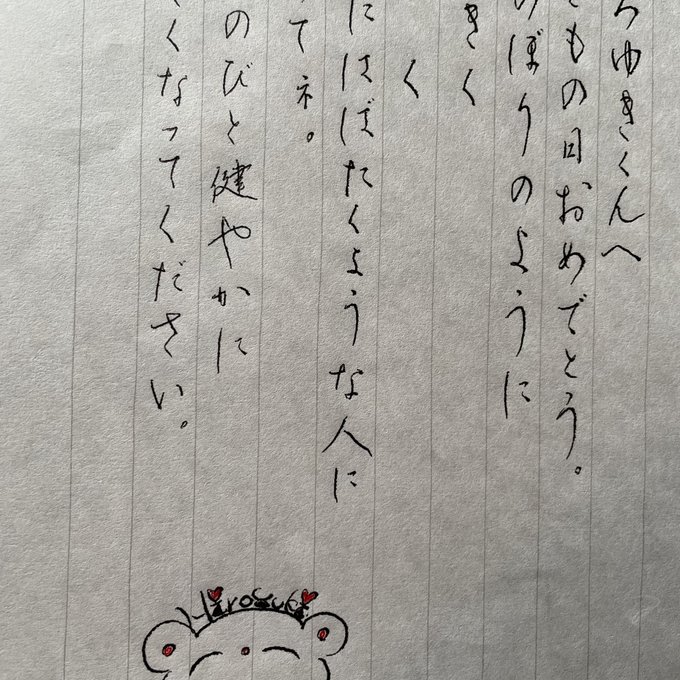 ろゆきくんへ
もの日おめでとう。
のぼりのように
きく
く
にはばたくような人に
てネ。
のびと健やかに
くなってください。
Hiroyuki